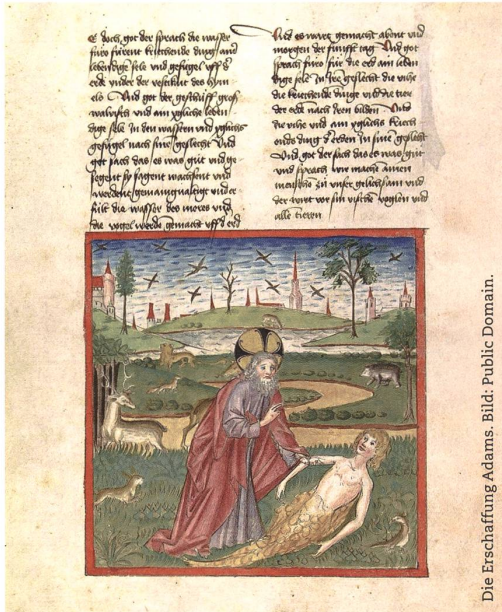 E doch got der sprach die wasser
fúro fúrent kriechende ding und
lebendige sele und gefúgel uff d
erd under der des hym
els Und got der geschúff gros
walvisch und ain yglichs leben
dige sele In den wassern und yglichs
gefúgel nach sine geslecht Und
got sach das es was gút und ge
segent sy sagent wachsent und
werdent und er
fúlt die wasser des mores und
die vogel werde gemacht uff d erd
Und es ward gemacht abent und
morgen der fúnfft tag Und got
sprach fúro fúr die erd ain leben
dige sele In Ire geslecht die vihe
die kriechende dinge und die tier
der erd nach Iren bilden Und
die vihe und ain yglichs kriech
ends ding d erden In sine geslecht
Und got der sach das es was gút
und sprach wir machē ainen
menschē zú unser gelichsam und
der sin vische voglen und
allen tieren
Die Erschaffung Adams. Bild: Public Domain.